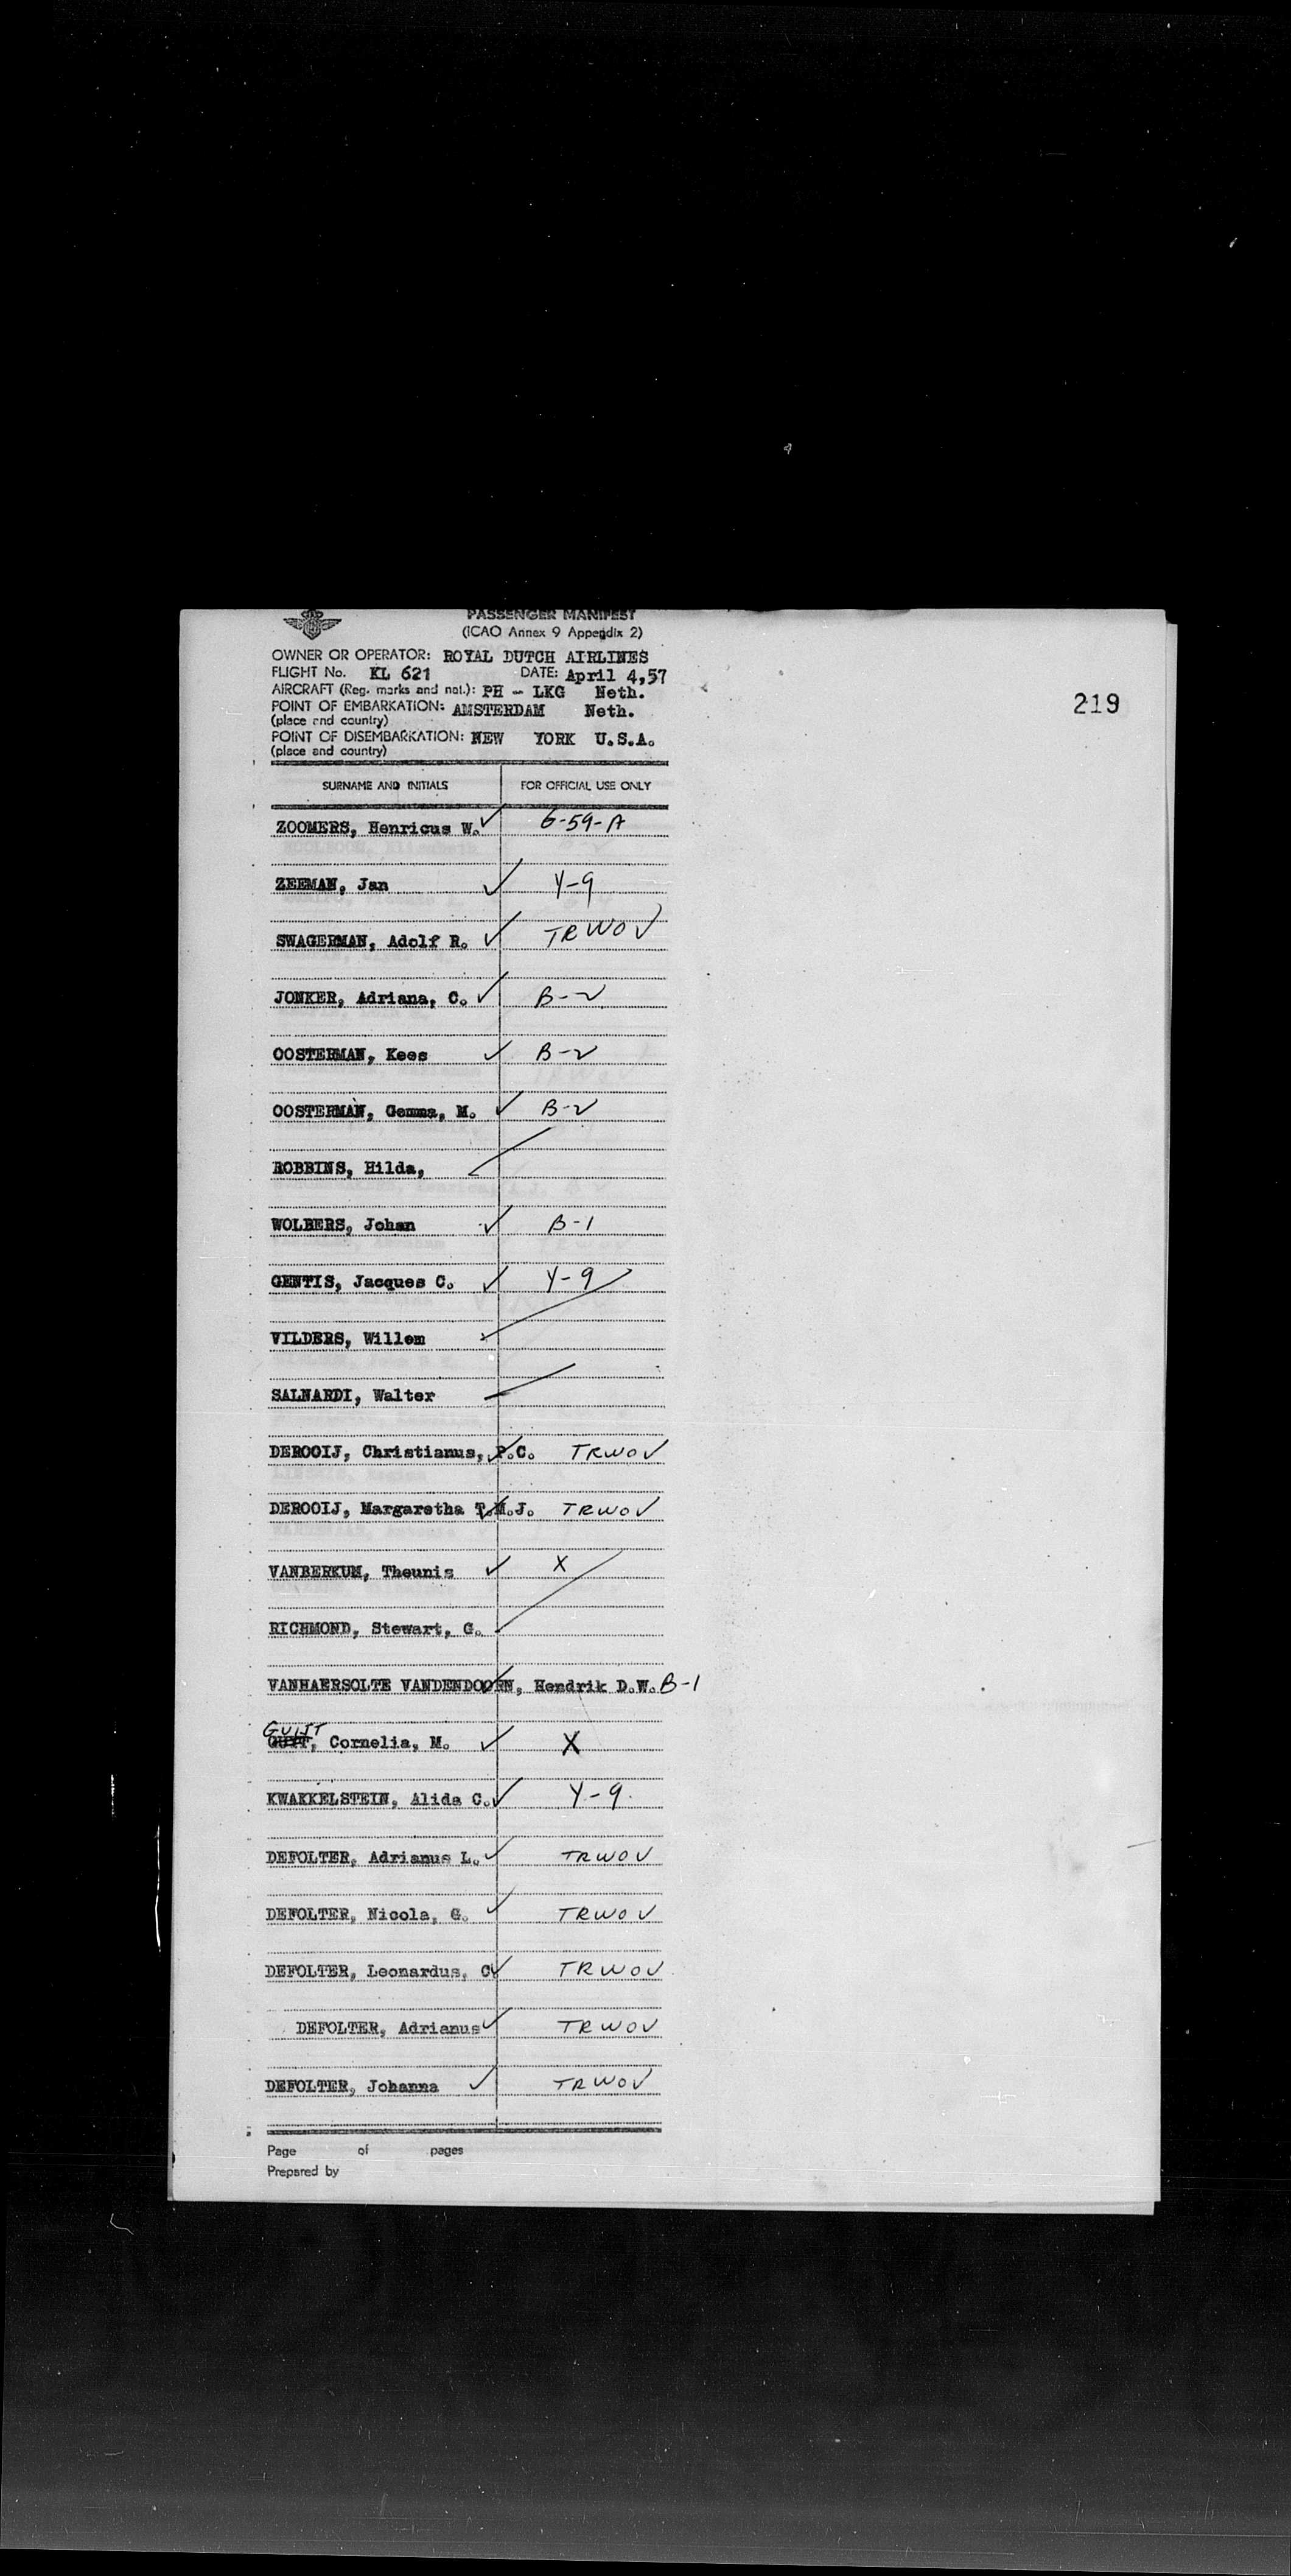 PASSENGER MANIFEST
(ICAO Annex 9 Appendix 2)
OWNER OR OPERATOR: ROYAL DUTCH AIRLINES
FLIGHT No. KL 621 DATE: April 4,57
AIRCRAFT (Reg. marks and nat.): PH - LKG Neth.
POINT OF EMBARKATION: AMSTERDAM Neth.
(place and country)
219
POINT OF DISEMBARKATION: NEW YORK U.S.A.
(place and country)
SURNAME AND INITIALS FOR OFFICIAL USE ONLY
ZOOMERS, Henricus W. ✓ 6-59-A
ZEEMAN, Jan ✓ Y-9
SWAGERMAN, Adolf R. ✓ TRWOV
JONKER, Adriana, C. ✓ B-2
OOSTERMAN, Kees ✓ B-2
OOSTERMAN, Gemma, M. ✓ B-2
ROBBINS, Hilda,
WOLBERS, Johan ✓ B-1
GENTIS, Jacques C. ✓ Y-9
VILDERS, Willem
SALNARDI, Walter
DEROOIJ, Christianus, P.C. TRWOV
DEROOIJ, Margaretha T.M.J. TRWOV
VANBERKUM, Theunis ✓ X
RICHMOND, Stewart, G.
VANHAERSOLTE VANDENDOORN, Hendrik D.W. B-1
GUIJT
, Cornelia, M. ✓ X
KWAKKELSTEIN, Alida C. ✓ Y-9.
DEFOLTER, Adrianus L. ✓ TRWOV
DEFOLTER, Nicola, G. ✓ TRWOV
DEFOLTER, Leonardus, C ✓ TRWOV
DEFOLTER, Adrianus ✓ TRWOV
DEFOLTER, Johanna ✓ TRWOV
Page of pages
Prepared by